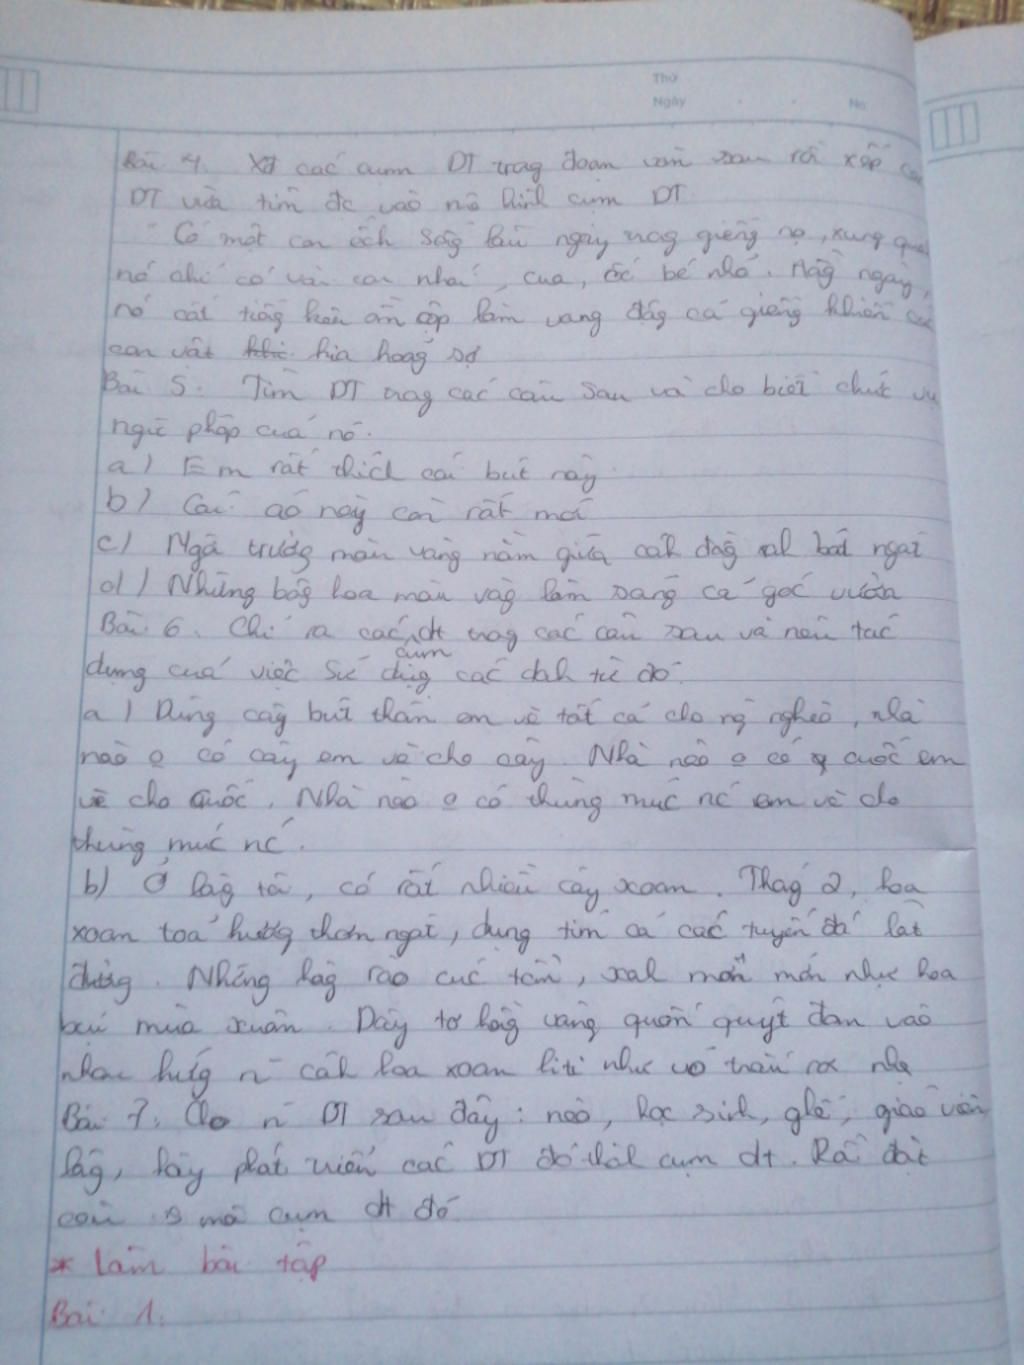 Thứ
Ngày
No
Bài 4. XĐ các cụm DT trog đoạn văn sau rồi xếp các
DT vừa tìm đc vào mô hình cụm DT.
Có một con ếch sốg lâu ngày trog giếng nọ, xung quah
nó chỉ có vài con nhái, cua, ốc bé nhỏ. Hàg ngày,
nó cất tiếg kêu ồm ộp làm vang độg cả giếng khiến các
con vật kia hoảg sợ
Bài 5. Tìm DT trog các câu sau và cho biết chức vụ
ngữ pháp của nó.
a) Em rất thích cái bút này
b) Cái áo này còn rất mới
c) Ngôi trường màu vàng nằm giữa cáh đồg xah bát ngát
d) Những bôg hoa màu vàg làm sáng cả góc vườn
Bài 6. Chỉ ra các cụm dt trog các câu sau và nêu tác
dụng của việc sử dụg các dah từ đó.
a) Dùng cây bút thần em vẽ tất cả cho ng nghèo, nhà
nào o có cày em vẽ cho cày. Nhà nào o có cuốc em
vẽ cho cuốc. Nhà nào o có thùng múc nc em vẽ cho
thùng múc nc.
b) Ở làg tôi, có rất nhiều cây xoan. Thág 2, hoa
xoan toả hương thơm ngát, rụng tím cả các tuyến đá lát
đường. Những hàg rào cúc tần, xah mơn mởn như hoa
bụi mùa xuân. Dây tơ hồg vàng quấn quýt đan vào
nhau hứg n~ cáh hoa xoan li ti như vỏ trấu rơi nhẹ
Bài 7. Cho n~ DT sau đây: nào, học sinh, ghế, giáo viên
làg, hãy phát triển các DT đó thàh cụm dt. Rồi đặt
câu s mỗi cụm dt đó
* Làm bài tập
Bài 1.